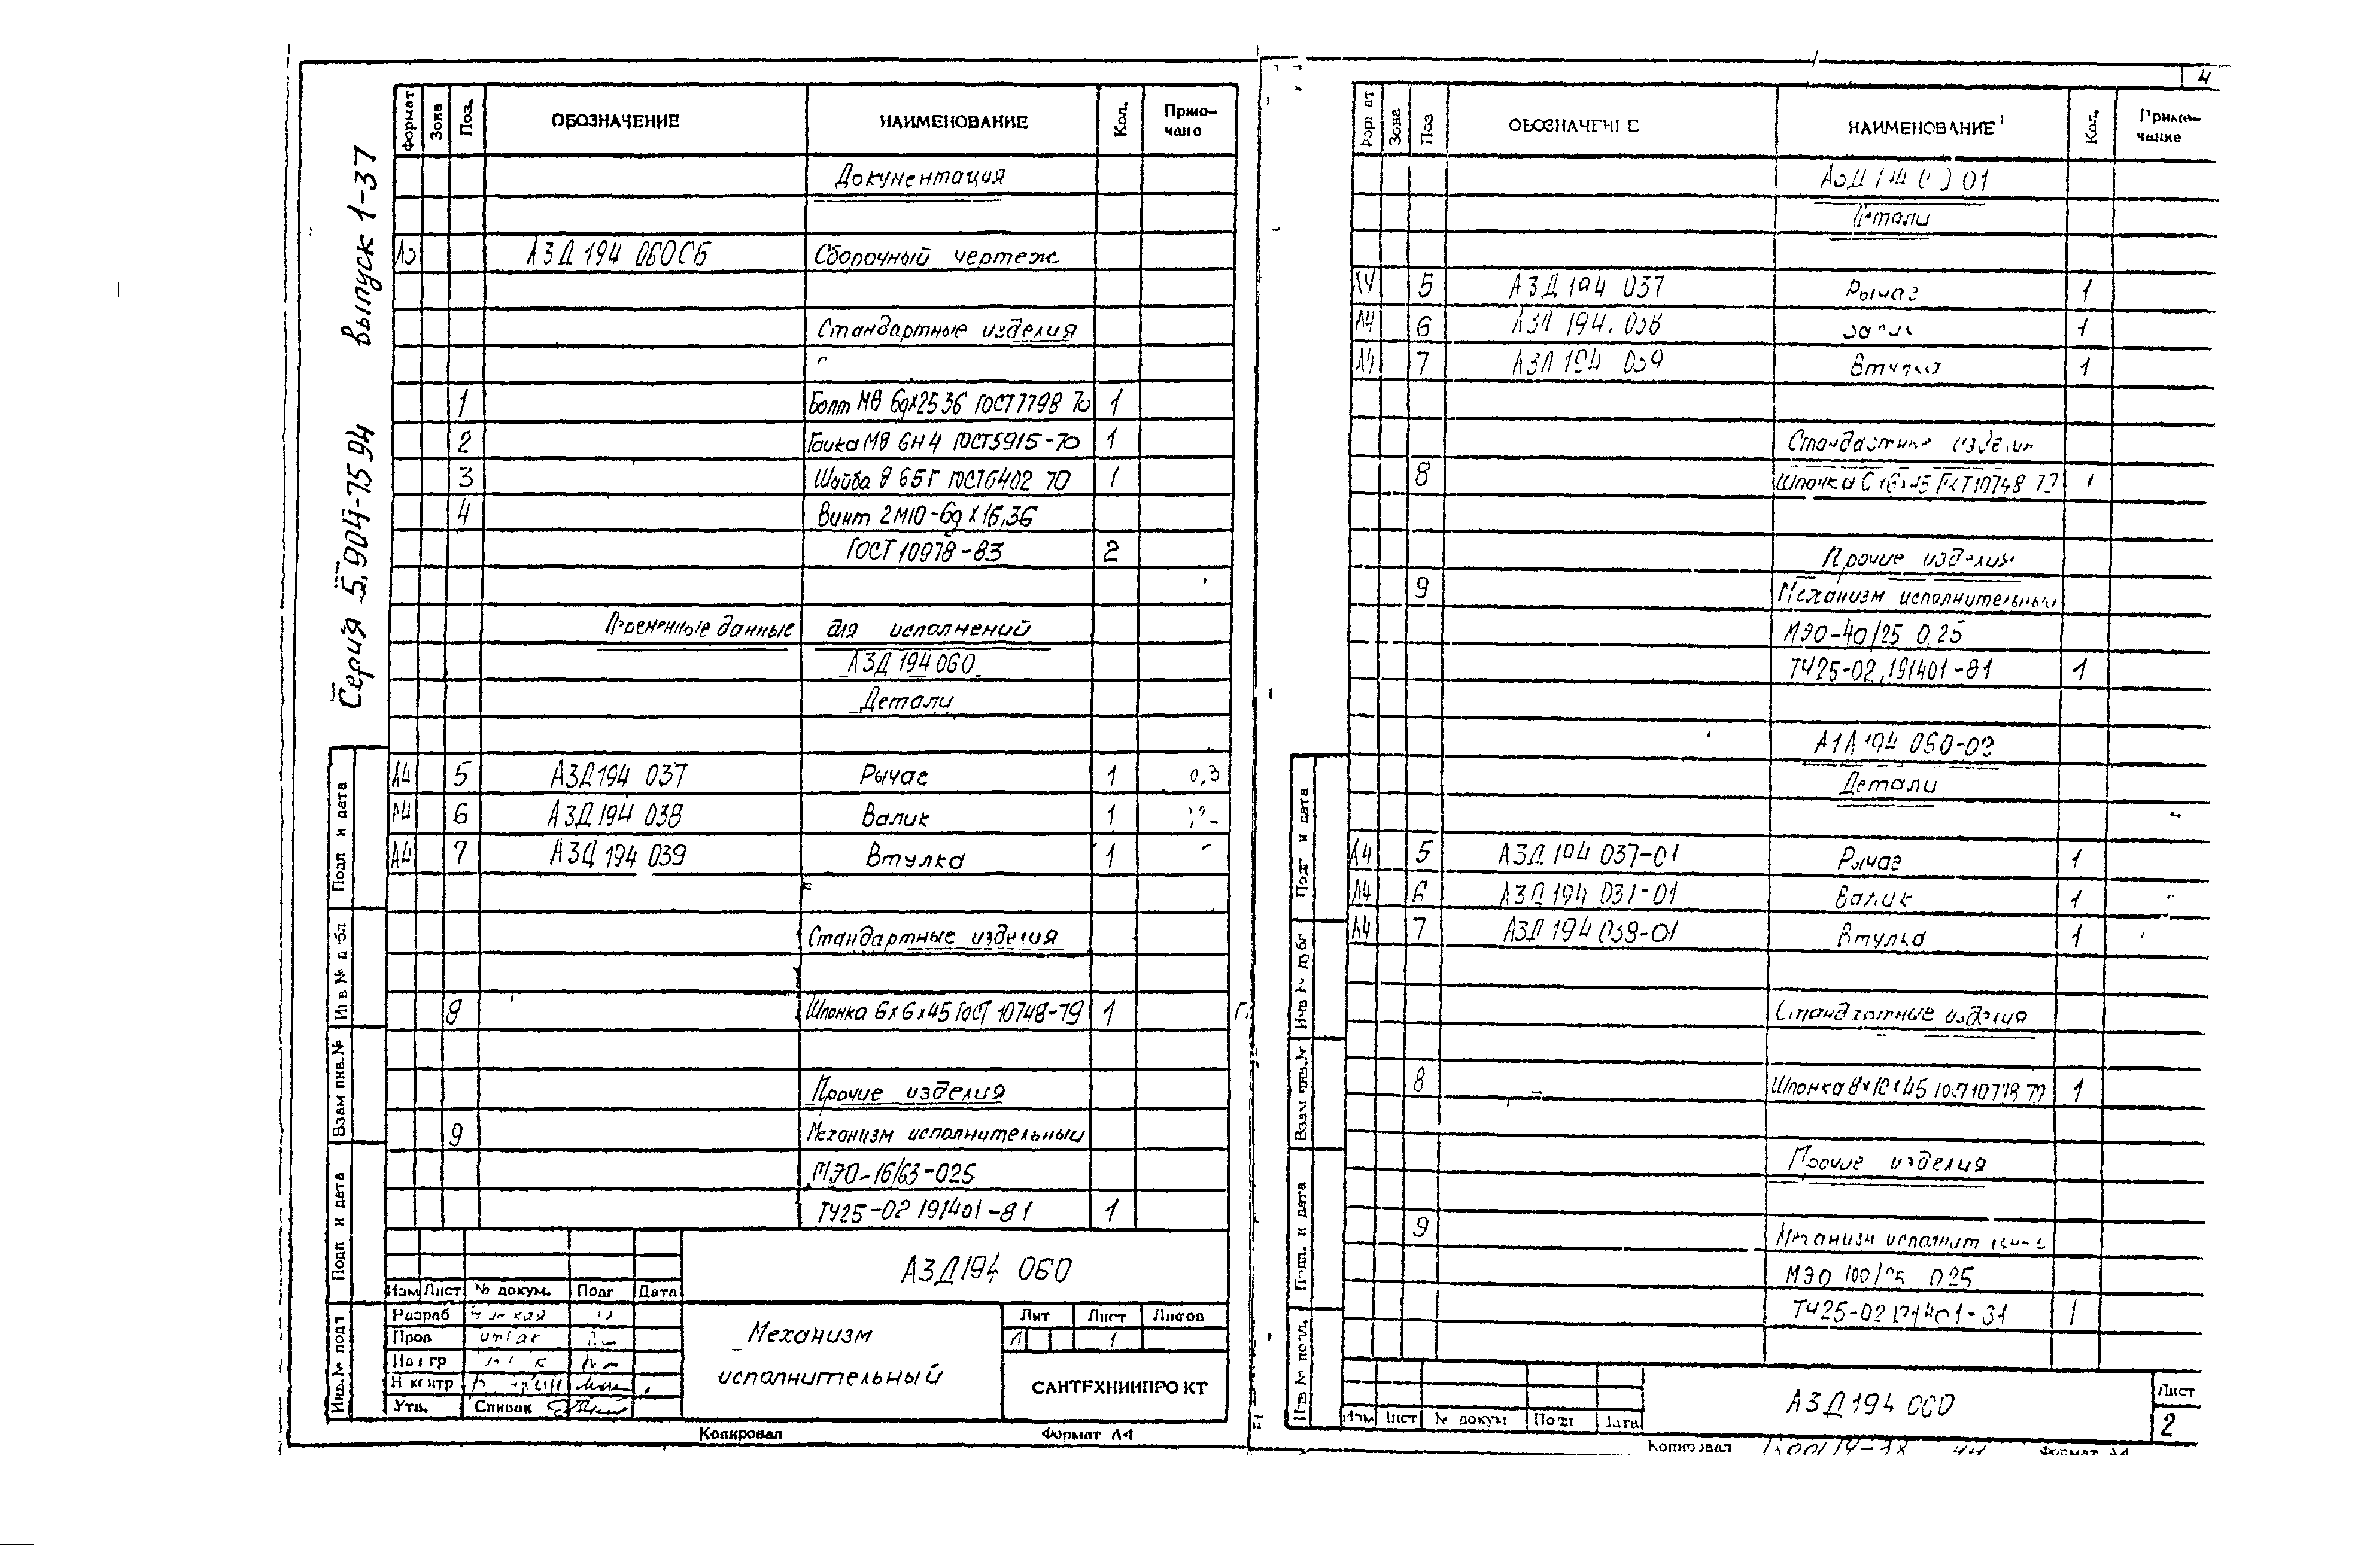 Серия 5.904-75 94 выпуск 1-37
Формат Зона Поз. ОБОЗНАЧЕНИЕ НАИМЕНОВАНИЕ Кол. Приме-
чано
Документация
А3Д 194 060СБ Сборочный чертеж
Стандартные изделия
1 Болт М8 6gх25 36 ГОСТ 7798 70 1
2 Гайка М8 6Н 4 ГОСТ 5915-70 1
3 Шайба 8 65Г ГОСТ 6402 70 1
4 Винт 2М10-6g х 16,36
ГОСТ 10978-83 2
Переменные данные для исполнений
А3Д 194 060
Детали
А4 5 А3Д 194 037 Рычаг 1 0,3
А4 6 А3Д 194 038 Валик 1
А4 7 А3Д 194 039 Втулка 1
Стандартные изделия
8 Шпонка 6х6х45 ГОСТ 10748-79 1
Прочие изделия
9 Механизм исполнительный
МЭО-16/63-025
ТУ25-02 191401-81 1
А3Д 194 060
Изм Лист № докум. Подп Дата
Разраб
Пров
Н контр
Утв. Спивак
Механизм
исполнительный
Лит Лист Листов
1
САНТЕХНИИПРОЕКТ
Копировал Формат А4
Подп и дата
Инв № дубл
Взам инв. №
Подп и дата
Инв. № подл
4
Зона Поз ОБОЗНАЧЕНИЕ НАИМЕНОВАНИЕ Кол. Приме-
чание
Детали
А4 5 А3Д 194 037 Рычаг 1
А4 6 А3Д 194. 038 Валик 1
А4 7 А3Д 194 039 Втулка 1
Стандартные изделия
8 Шпонка ГОСТ 10748 79 1
Прочие изделия
9 Механизм исполнительный
МЭО-40/25 0,25
ТУ25-02,191401-81 1
Детали
А4 5 А3Д 194 037-01 Рычаг 1
А4 6 Валик 1
А4 7 А3Д 194 039-01 Втулка 1
Стандартные изделия
8 Шпонка 8х10х45 1
Прочие изделия
9 Механизм
МЭО 100/25 025
ТУ25-02 191401-81 1
Изм Лист № докум Подп Дата
А3Д 194 060
Лист
2
Копировал Формат А4
Подп и дата
Инв № дубл
Взам инв.№
Подп. и дата
Инв № подл